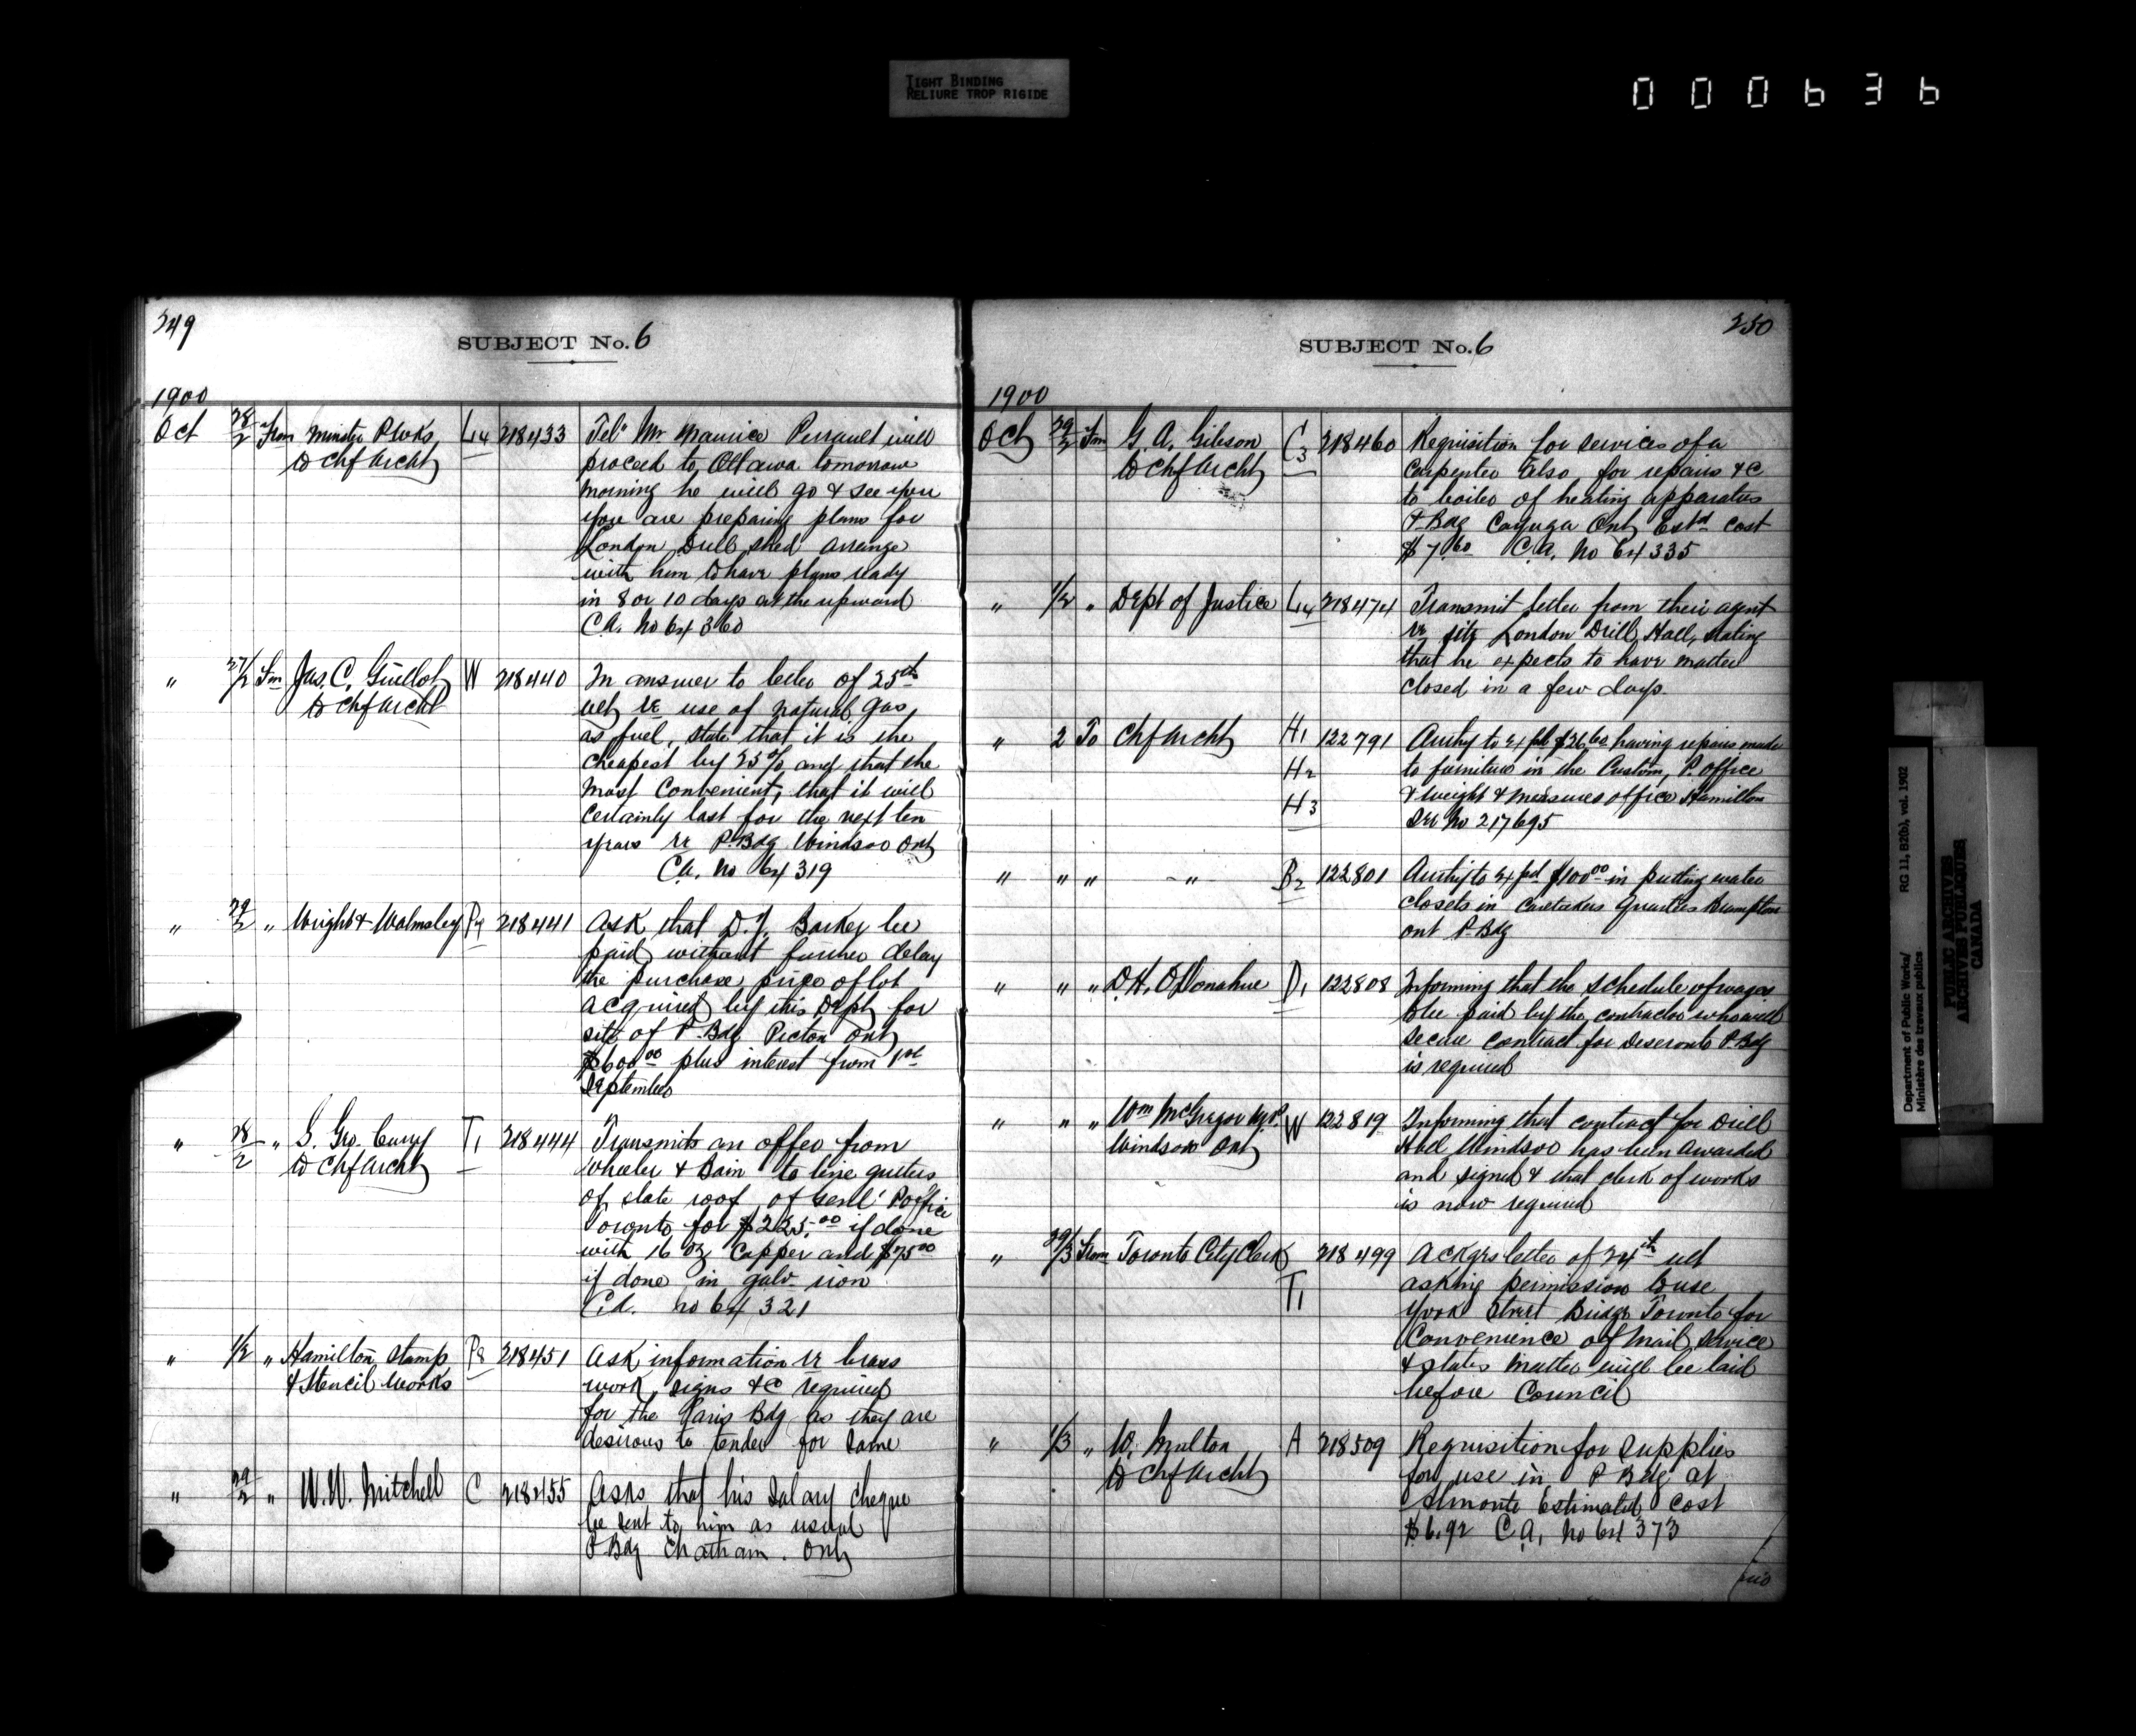 TIGHT BINDING
RELIURE TROP RIGIDE
000636
249
SUBJECT No. 6
1900
Oct 28/2 From Minister P. Wks, L14 218433 Telm Mr Maurice Perrault will
to Chf Archt proceed to Ottawa tomorrow
morning he will go & see you
you are preparing plans for
London Drill Shed arrange
with him to have plans ready
in 8 or 10 days at the upward
C.A. No 64360
" 27/2 Fm Jas. C. Guillot W 218440 In answer to letter of 25th
to Chf Archt ult re use of natural gas,
as fuel, state that it is the
cheapest by 25% and that the
most Convenient, that it will
certainly last for the next ten
years re P. Bdg Windsor Ont
C.A. No 64319
" 29/2 " Wright & Walmsley P9 218441 Ask that D. J. Barker be
paid without further delay
the purchase price of lot
acquired by this Dept for
site of P. Bdg Picton Ont
$600.00 plus interest from 1st
September
" 28/2 " S. Geo. Curry T1 218444 Transmits an offer from
to Chf Archt Wheeler & Bain to line gutters
of slate roof of Genl. Post Office
Toronto for $225.00 if done
with 16 oz Copper and $75.00
if done in galv iron
C.A. No 64321
" 1/2 " Hamilton Stamp P8 218451 Ask information re brass
& Stencil Works work, signs &c required
for the Paris Bdg as they are
desirous to tender for same
" 29/2 " W. W. Mitchell C 218455 Asks that his Salary cheque
be sent to him as usual
P. Bdg Chatham. Ont
250
SUBJECT No. 6
1900
Oct 29/2 Fm G. A. Gibson C3 218460 Requisition for services of a
to Chf Archt Carpenter also for repairs &c
to boiler of heating apparatus
P. Bdg Cayuga Ont Estd cost
$7.60 C.A. No 64335
" 1/2 " Dept of Justice L14 218474 Transmit letter from their agent
re site London Drill Hall, stating
that he expects to have matter
closed in a few days.
" 2 To Chf Archt H1 122791 Authy to expd $26.60 having repairs made
H2 to furniture in the Custom, P. office
H3 & Weight & Measures office Hamilton
See No 217695
" " " - " B2 122801 Authy to expd $100.00 in putting water
closets in Caretakers Quarters Brampton
Ont P. Bdg
" " " D. H. O'Donahue D1 122808 Informing that the schedule of wages
to be paid by the contractor who will
secure contract for Deseronto P. Bdg
is required
" " " Wm McGregor M.P. W 122819 Informing that contract for Drill
Windsor Ont Hall Windsor has been awarded
and signed & that clerk of works
is now required
" 29/3 From Toronto City Clerk 218499 Ackgs letter of 24th ult
T1 asking permission to use
York Street Bridge Toronto for
Convenience of Mail Service
& states matter will be laid
before Council
" 1/3 " W. Multon A 218509 Requisition for Supplies
to Chf Archt for use in P. Bdg at
Almonte Estimated Cost
$6.92 C.A. No 64373
Department of Public Works/ RG 11, B2(b), vol. 1902
Ministère des travaux publics
PUBLIC ARCHIVES
ARCHIVES PUBLIQUES
CANADA